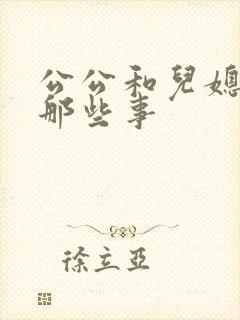 公公和兒媳
那些事
徐立亞